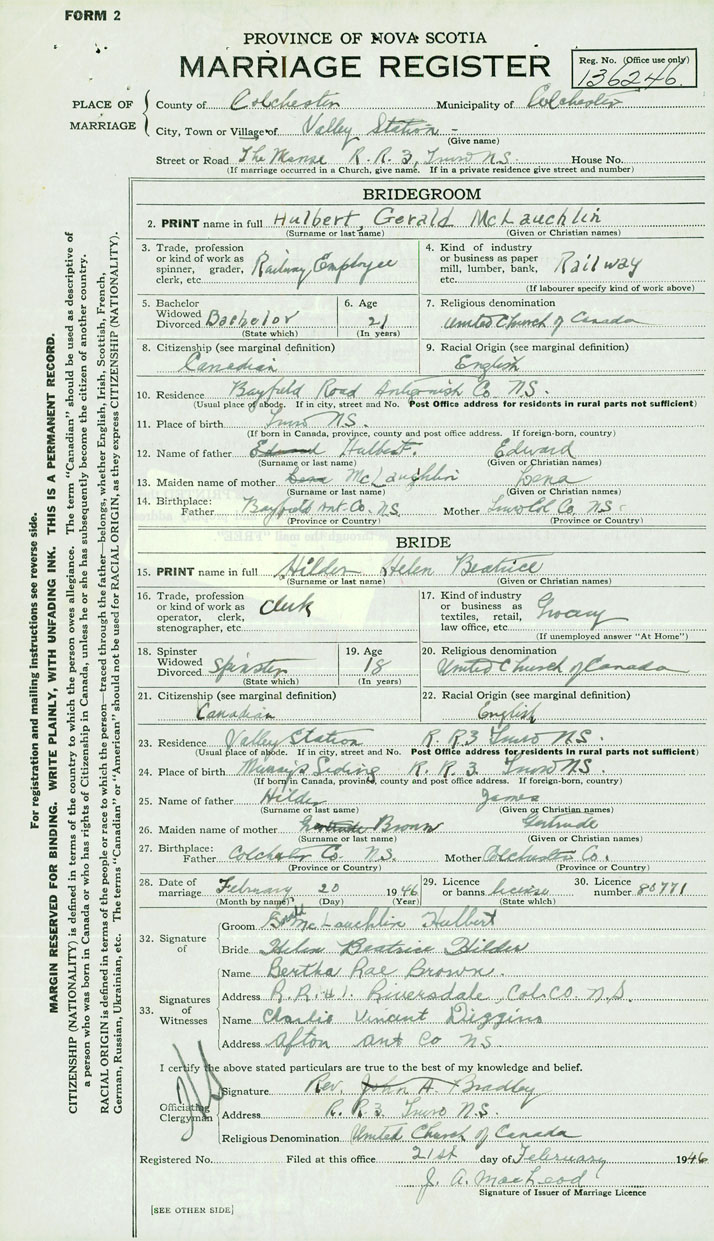 FORM 2
PROVINCE OF NOVA SCOTIA
MARRIAGE REGISTER
Reg. No. (Office use only)
136246
PLACE OF MARRIAGE
County of Colchester Municipality of Colchester
City, Town or Village of Valley Station -
(Give name)
Street or Road The Manse R. R. 3, Truro N.S. House No.
(If marriage occurred in a Church, give name. If in a private residence give street and number)
BRIDEGROOM
2. PRINT name in full Hulbert, Gerald McLauchlin
(Surname or last name) (Given or Christian names)
3. Trade, profession or kind of work as spinner, grader, clerk, etc. Railway Employee
4. Kind of industry or business as paper mill, lumber, bank, etc. Railway
(If labourer specify kind of work above)
5. Bachelor Widowed Divorced Bachelor
(State which)
6. Age 21
(In years)
7. Religious denomination
United Church of Canada
8. Citizenship (see marginal definition)
Canadian
9. Racial Origin (see marginal definition)
English
10. Residence Bayfield Road Antigonish Co. N.S.
(Usual place of abode. If in city, street and No. Post Office address for residents in rural parts not sufficient)
11. Place of birth Truro N.S.
(If born in Canada, province, county and post office address. If foreign-born, country)
12. Name of father Edward Hulbert. Edward
(Surname or last name) (Given or Christian names)
13. Maiden name of mother Lena McLaughlin Lena
(Surname or last name) (Given or Christian names)
14. Birthplace: Father Bayfield Ant. Co. N.S. Mother Co. N.S.
(Province or Country) (Province or Country)
BRIDE
15. PRINT name in full Hilden Helen Beatrice
(Surname or last name) (Given or Christian names)
16. Trade, profession or kind of work as operator, clerk, stenographer, etc. Clerk
17. Kind of industry or business as textiles, retail, law office, etc. Grocery
(If unemployed answer "At Home")
18. Spinster Widowed Divorced Spinster
(State which)
19. Age 18
(In years)
20. Religious denomination
United Church of Canada
21. Citizenship (see marginal definition)
Canadian
22. Racial Origin (see marginal definition)
English
23. Residence Valley Station R. R. 3 Truro N.S.
(Usual place of abode. If in city, street and No. Post Office address for residents in rural parts not sufficient)
24. Place of birth Murray's Siding R. R. 3. Truro N.S.
(If born in Canada, province, county and post office address. If foreign-born, country)
25. Name of father Hilden James
(Surname or last name) (Given or Christian names)
26. Maiden name of mother Gertrude Brown Gertrude
(Surname or last name) (Given or Christian names)
27. Birthplace: Father Colchester Co. N.S. Mother Colchester Co.
(Province or Country) (Province or Country)
28. Date of marriage February 20 1946
(Month by name) (Day) (Year)
29. Licence or banns license
(State which)
30. Licence number 80771
32. Signature of
Groom McLauchlin Hulbert
Bride Helen Beatrice Hilden
33. Signatures of Witnesses
Name Bertha Rae Brown.
Address R.R.#1. Riversdale, Col. Co. N.S.
Name Charlie Vincent Diggins
Address Afton Ant Co N.S.
I certify the above stated particulars are true to the best of my knowledge and belief.
Officiating Clergyman
Signature Rev. John A. Bradley
Address R. R. 3. Truro N.S.
Religious Denomination United Church of Canada
Registered No. Filed at this office 21st day of February 1946
J. A. MacLeod
Signature of Issuer of Marriage Licence
[SEE OTHER SIDE]
For registration and mailing instructions see reverse side.
MARGIN RESERVED FOR BINDING. WRITE PLAINLY, WITH UNFADING INK. THIS IS A PERMANENT RECORD.
CITIZENSHIP (NATIONALITY) is defined in terms of the country to which the person owes allegiance. The term "Canadian" should be used as descriptive of
a person who was born in Canada or who has rights of Citizenship in Canada, unless he or she has subsequently become the citizen of another country.
RACIAL ORIGIN is defined in terms of the people or race to which the person—traced through the father—belongs, whether English, Irish, Scottish, French,
German, Russian, Ukrainian, etc. The terms "Canadian" or "American" should not be used for RACIAL ORIGIN, as they express CITIZENSHIP (NATIONALITY).